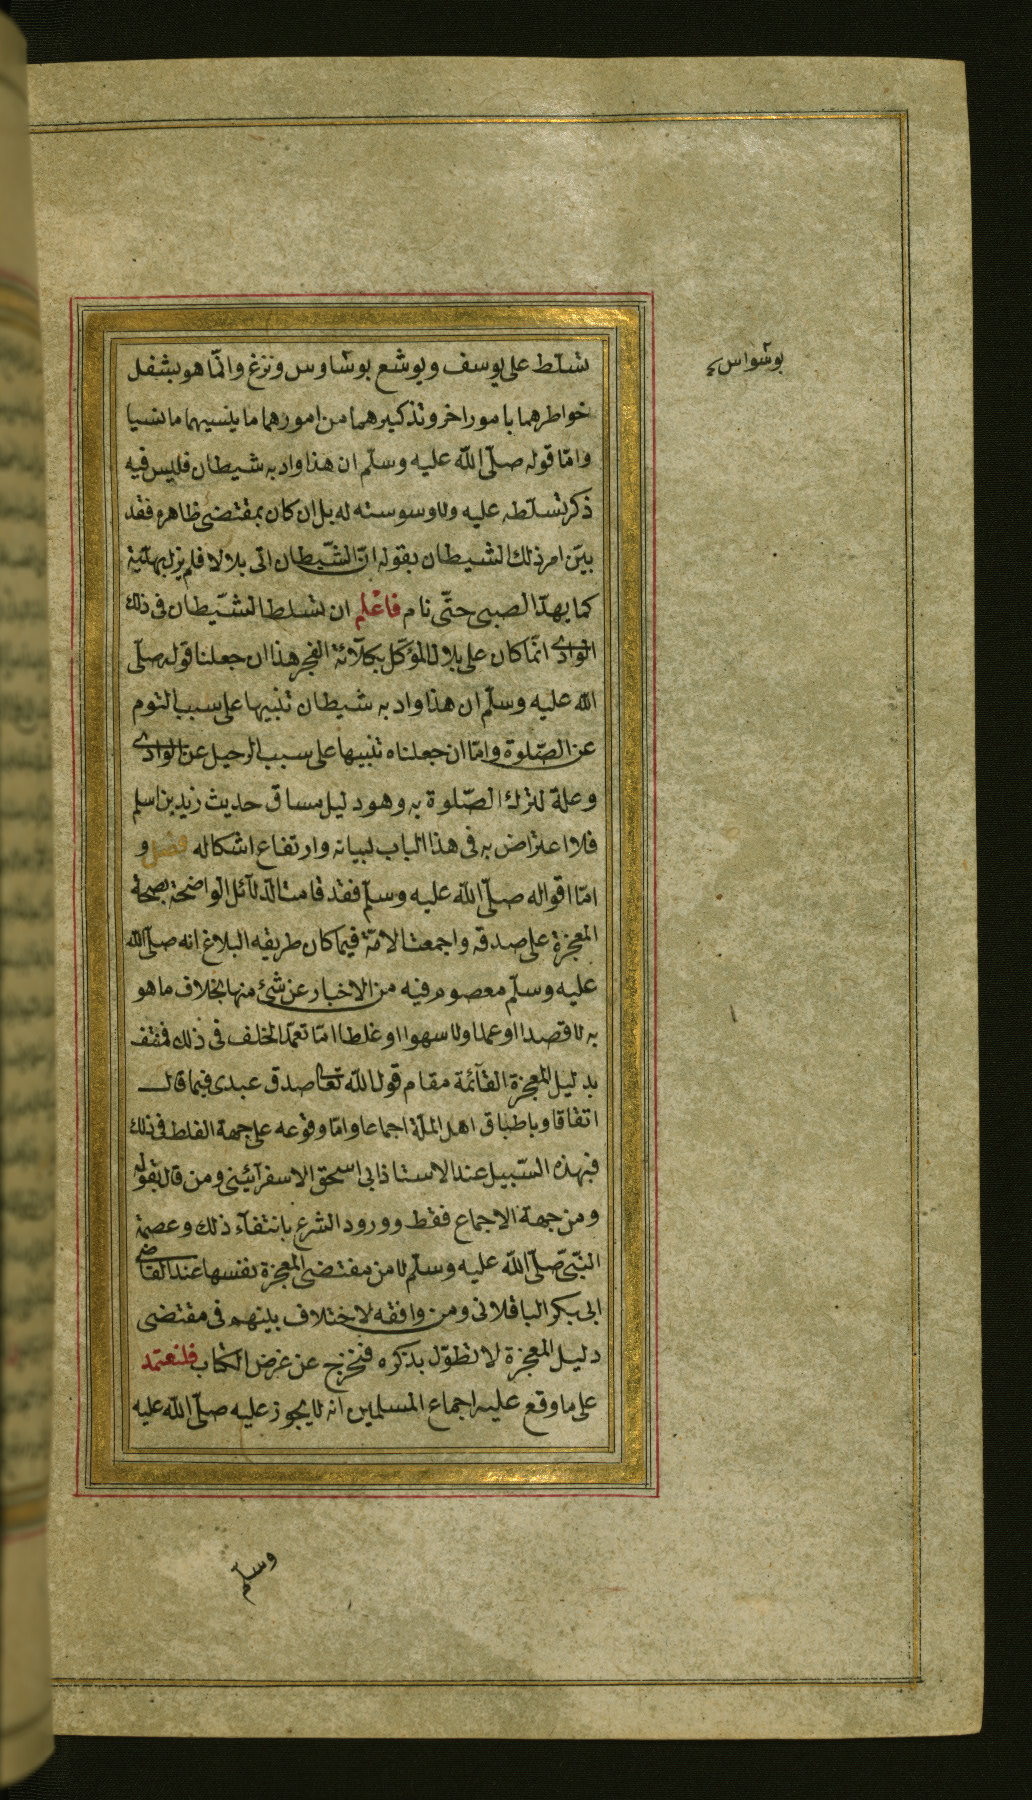 تسلط على يوسف ويوشع بوساوس ونزغ وانما هو بشغل
بوسواس
خواطرهما بامور اخر وتذكيرهما من امورهما ما ينسيهما ما نسيا
واما قوله صلى الله عليه وسلم ان هذا واد به شيطان فليس فيه
ذكر تسلطه عليه ولا وسوسته له بل ان كان بمقتضى ظاهره فقد
بين امر ذلك الشيطان بقوله ان الشيطان اتى بلالا فلم يزل يهدئه
كما يهدا الصبي حتى نام فاعلم ان تسلط الشيطان فى ذلك
الوادى انما كان على بلال الموكل بكلائة الفجر هذا ان جعلنا قوله صلى
الله عليه وسلم ان هذا واد به شيطان تنبيها على سبب النوم
عن الصلوة واما ان جعلناه تنبيها على سبب الرحيل عن الوادى
وعلة لترك الصلوة به وهو دليل مساق حديث زيد بن اسلم
فلا اعتراض به فى هذا الباب لبيانه وارتفاع اشكاله فصل و
اما اقواله صلى الله عليه وسلم فقد قامت الدلائل الواضحة بصحة
المعجزة على صدقه واجمعت الامة فيما كان طريقه البلاغ انه صلى الله
عليه وسلم معصوم فيه من الاخبار عن شئ منها بخلاف ما هو
به لا قصدا او عمدا ولا سهوا او غلطا اما تعمد الخلف فى ذلك فمنتف
بدليل المعجزة القائمة مقام قول الله تعالى صدق عبدى فيما قال
اتفاقا وباطباق اهل الملة اجماعا واما وقوعه على جهة الغلط فى ذلك
فبهذه السبيل عند الاستاذ ابى اسحق الاسفرائينى ومن قال بقوله
ومن جهة الاجماع فقط وورود الشرع بانتفاء ذلك وعصمة
النبى صلى الله عليه وسلم لا من مقتضى المعجزة نفسها عند القاضى
ابى بكر الباقلانى ومن وافقه لاختلاف بينهم فى مقتضى
دليل المعجزة لا نطول بذكره فنخرج عن غرض الكتاب فلنعتمد
على ما وقع عليه اجماع المسلمين انه لا يجوز عليه صلى الله عليه
وسلم